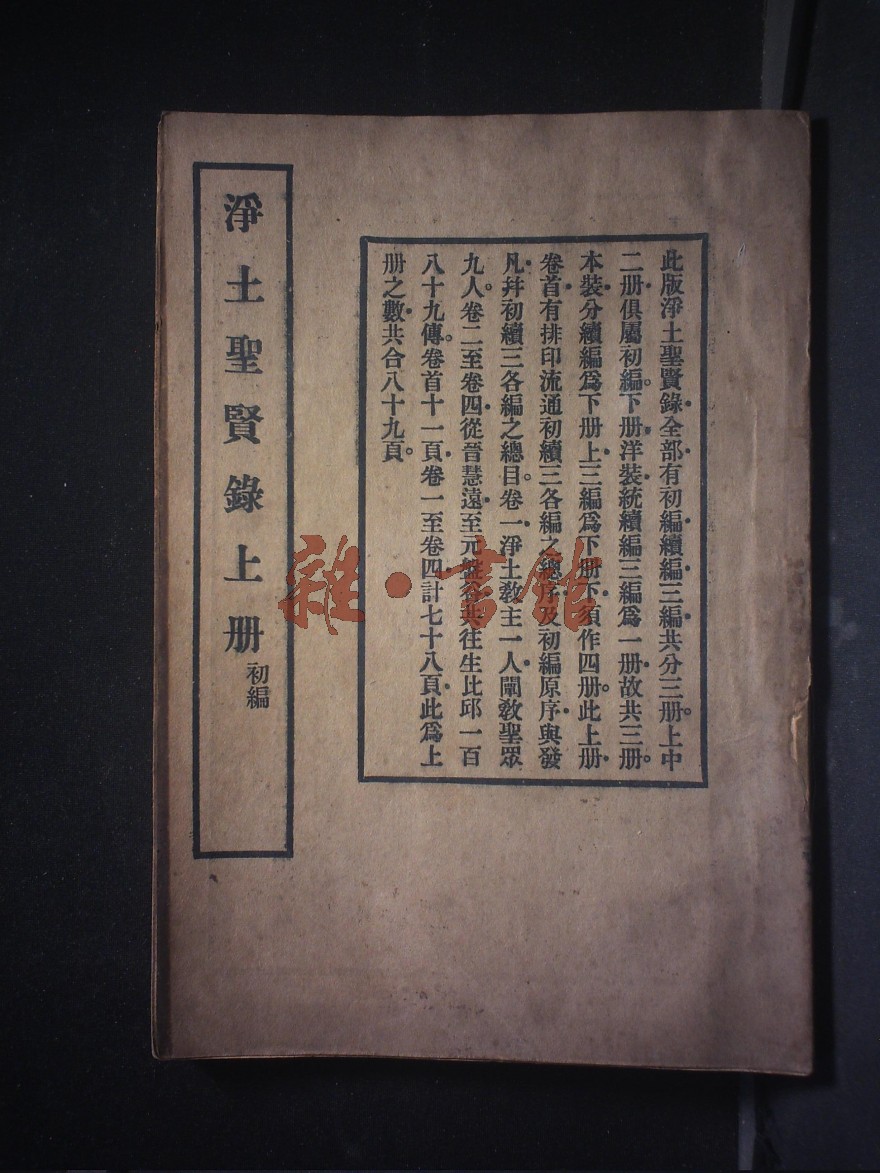 此版淨土聖賢錄全部有初編續編三編共分三册。上中
二册俱屬初編。下册洋裝統續編三編爲一册故共三册。
本裝分續編爲下册上三編爲下册下須作四册。此上册
卷首有排印流通初續三各編之總序及初編原序與發
凡幷初續三各編之總目。卷一淨土敎主一人闡敎聖眾
九人。卷二至卷四從晉慧遠至元盤谷共往生比邱一百
八十九傳。卷首十一頁卷一至卷四計七十八頁此爲上
册之數共合八十九頁。
淨土聖賢錄上册
初編
雜·書館